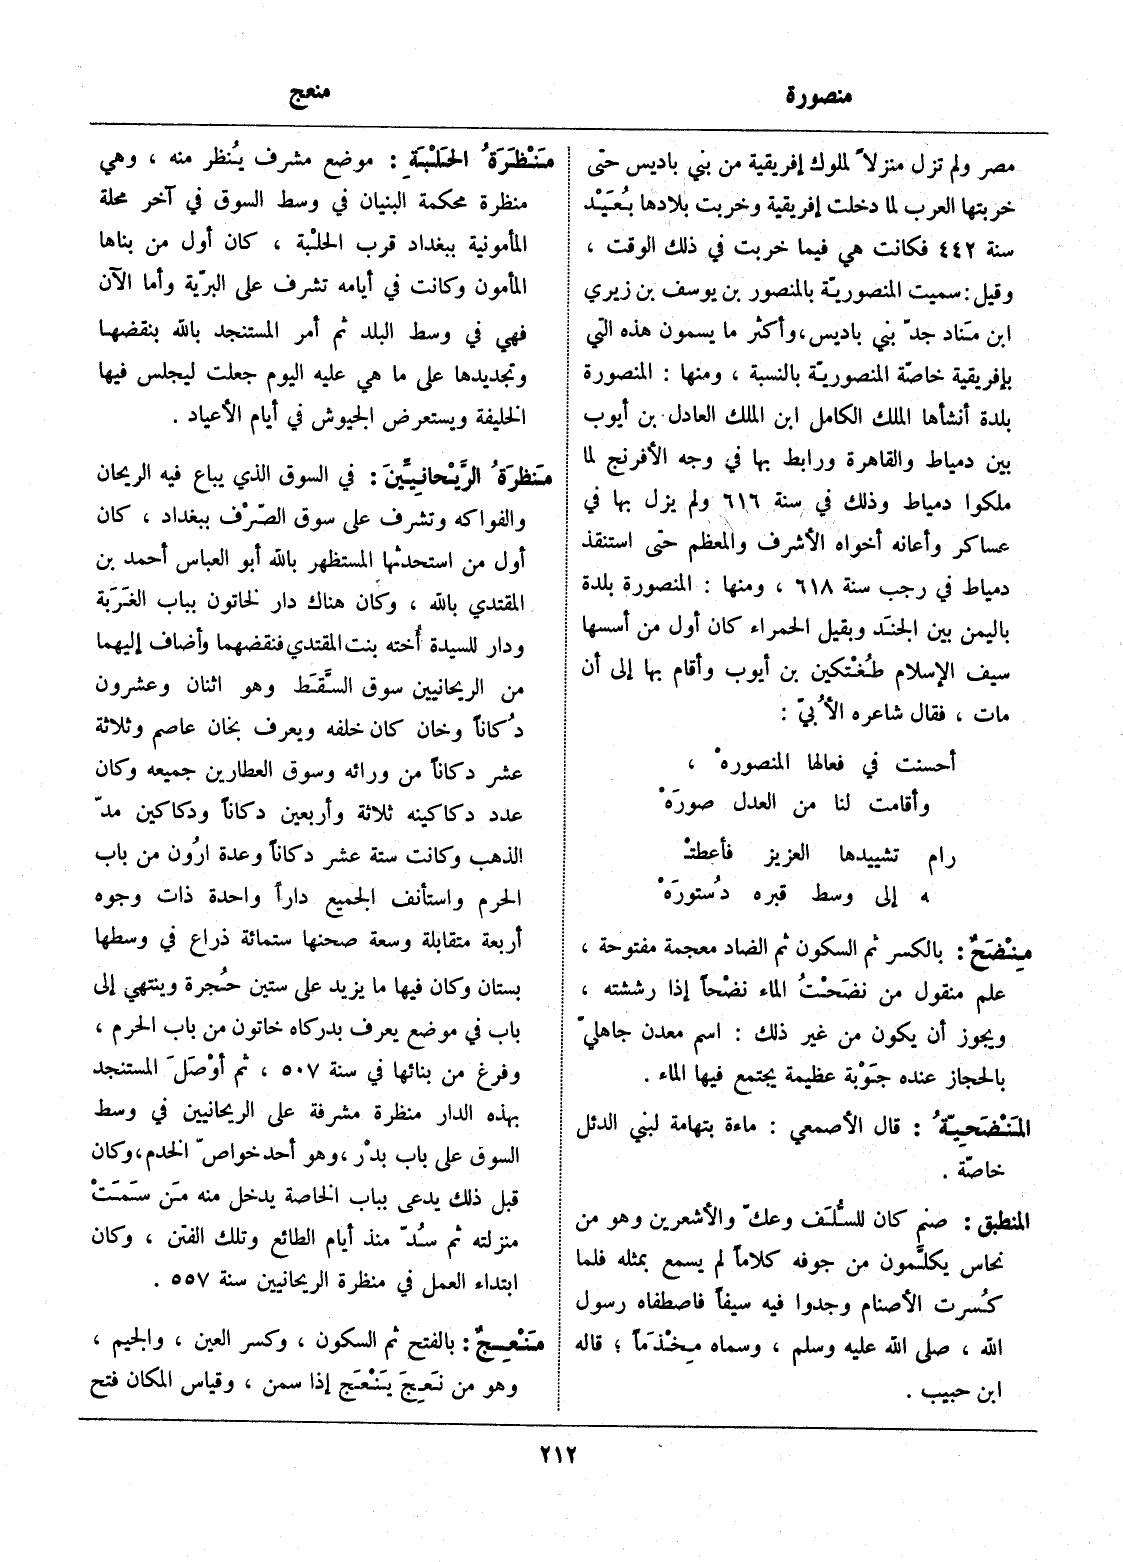 منصورة
منعج
مصر ولم تزل منزلاً لملوك إفريقية من بني باديس حتى
خربتها العرب لما دخلت إفريقية وخربت بلادها بُعَيْد
سنة ٤٤٢ فكانت هي فيما خربت في ذلك الوقت ،
وقيل : سميت المنصوريّة بالمنصور بن يوسف بن زيري
ابن مَناد جدّ بني باديس ، وأكثر ما يسمون هذه التي
بإفريقية خاصّة المنصوريّة بالنسبة ، ومنها : المنصورة
بلدة أنشأها الملك الكامل ابن الملك العادل بن أيوب
بين دمياط والقاهرة ورابط بها في وجه الأفرنج لما
ملكوا دمياط وذلك في سنة ٦١٦ ولم يزل بها في
عساكر وأعانه أخواه الأشرف والمعظم حتى استنقذ
دمياط في رجب سنة ٦١٨ ، ومنها : المنصورة بلدة
باليمن بين الجنَد وبقيل الحمراء كان أول من أسسها
سيف الإسلام طُغْتكين بن أيوب وأقام بها إلى أن
مات ، فقال شاعره الأُبيّ :
أحسنت في فعالها المنصورهْ ،
وأقامت لنا من العدل صورَهْ
رام تشييدها العزيز فأعطتْـ
ـه إلى وسط قبره دُستورَهْ
مِنْضَحٌ : بالكسر ثم السكون ثم الضاد معجمة مفتوحة ،
علم منقول من نضَحْتُ الماء نضْحاً إذا رششته ،
ويجوز أن يكون من غير ذلك : اسم معدن جاهليّ
بالحجاز عنده جَوْبة عظيمة يجتمع فيها الماء .
المَنْضَحيّةُ : قال الأصمعي : ماءة بتهامة لبني الدئل
خاصّة .
المنطبق : صنم كان للسُّلَف وعكّ والأشعرين وهو من
نحاس يكلَّمون من جوفه كلاماً لم يسمع بمثله فلما
كُسرت الأصنام وجدوا فيه سيفاً فاصطفاه رسول
الله ، صلى الله عليه وسلم ، وسماه مِخْذَماً ؛ قاله
ابن حبيب .
مَنْظَرَةُ الحَلْبَةِ : موضع مشرف يُنظر منه ، وهي
منظرة محكمة البنيان في وسط السوق في آخر محلة
المأمونية ببغداد قرب الحلْبة ، كان أول من بناها
المأمون وكانت في أيامه تشرف على البرّية وأما الآن
فهي في وسط البلد ثم أمر المستنجد بالله بنقضها
وتجديدها على ما هي عليه اليوم جعلت ليجلس فيها
الخليفة ويستعرض الجيوش في أيام الأعياد .
مَنظرَةُ الرَّيْحانِيِّينَ : في السوق الذي يباع فيه الريحان
والفواكه وتشرف على سوق الصّرْف ببغداد ، كان
أول من استحدثها المستظهر بالله أبو العباس أحمد بن
المقتدي بالله ، وكان هناك دار لخاتون بباب الغَرَبة
ودار للسيدة أُخته بنت المقتدي فنقضهما وأضاف إليهما
من الريحانيين سوق السَّقَط وهو اثنان وعشرون
دُكاناً وخان كان خلفه ويعرف بخان عاصم وثلاثة
عشر دكاناً من ورائه وسوق العطارين جميعه وكان
عدد دكاكينه ثلاثة وأربعين دكاناً ودكاكين مدّ
الذهب وكانت ستة عشر دكاناً وعدة ارُون من باب
الحرم واستأنف الجميع داراً واحدة ذات وجوه
أربعة متقابلة وسعة صحنها ستمائة ذراع في وسطها
بستان وكان فيها ما يزيد على ستين حُجرة وينتهي إلى
باب في موضع يعرف بدركاه خاتون من باب الحرم ،
وفرغ من بنائها في سنة ٥٠٧ ، ثم أوْصَلَ المستنجد
بهذه الدار منظرة مشرفة على الريحانيين في وسط
السوق على باب بدْر ، وهو أحد خواصّ الخدم ، وكان
قبل ذلك يدعى بباب الخاصة يدخل منه مَن سَمَتْ
منزلته ثم سُدّ منذ أيام الطائع وتلك الفتن ، وكان
ابتداء العمل في منظرة الريحانيين سنة ٥٥٧ .
مَنْعِجٌ : بالفتح ثم السكون ، وكسر العين ، والجيم ،
وهو من نَعِجَ يَنْعَج إذا سمن ، وقياس المكان فتح
٢١٢